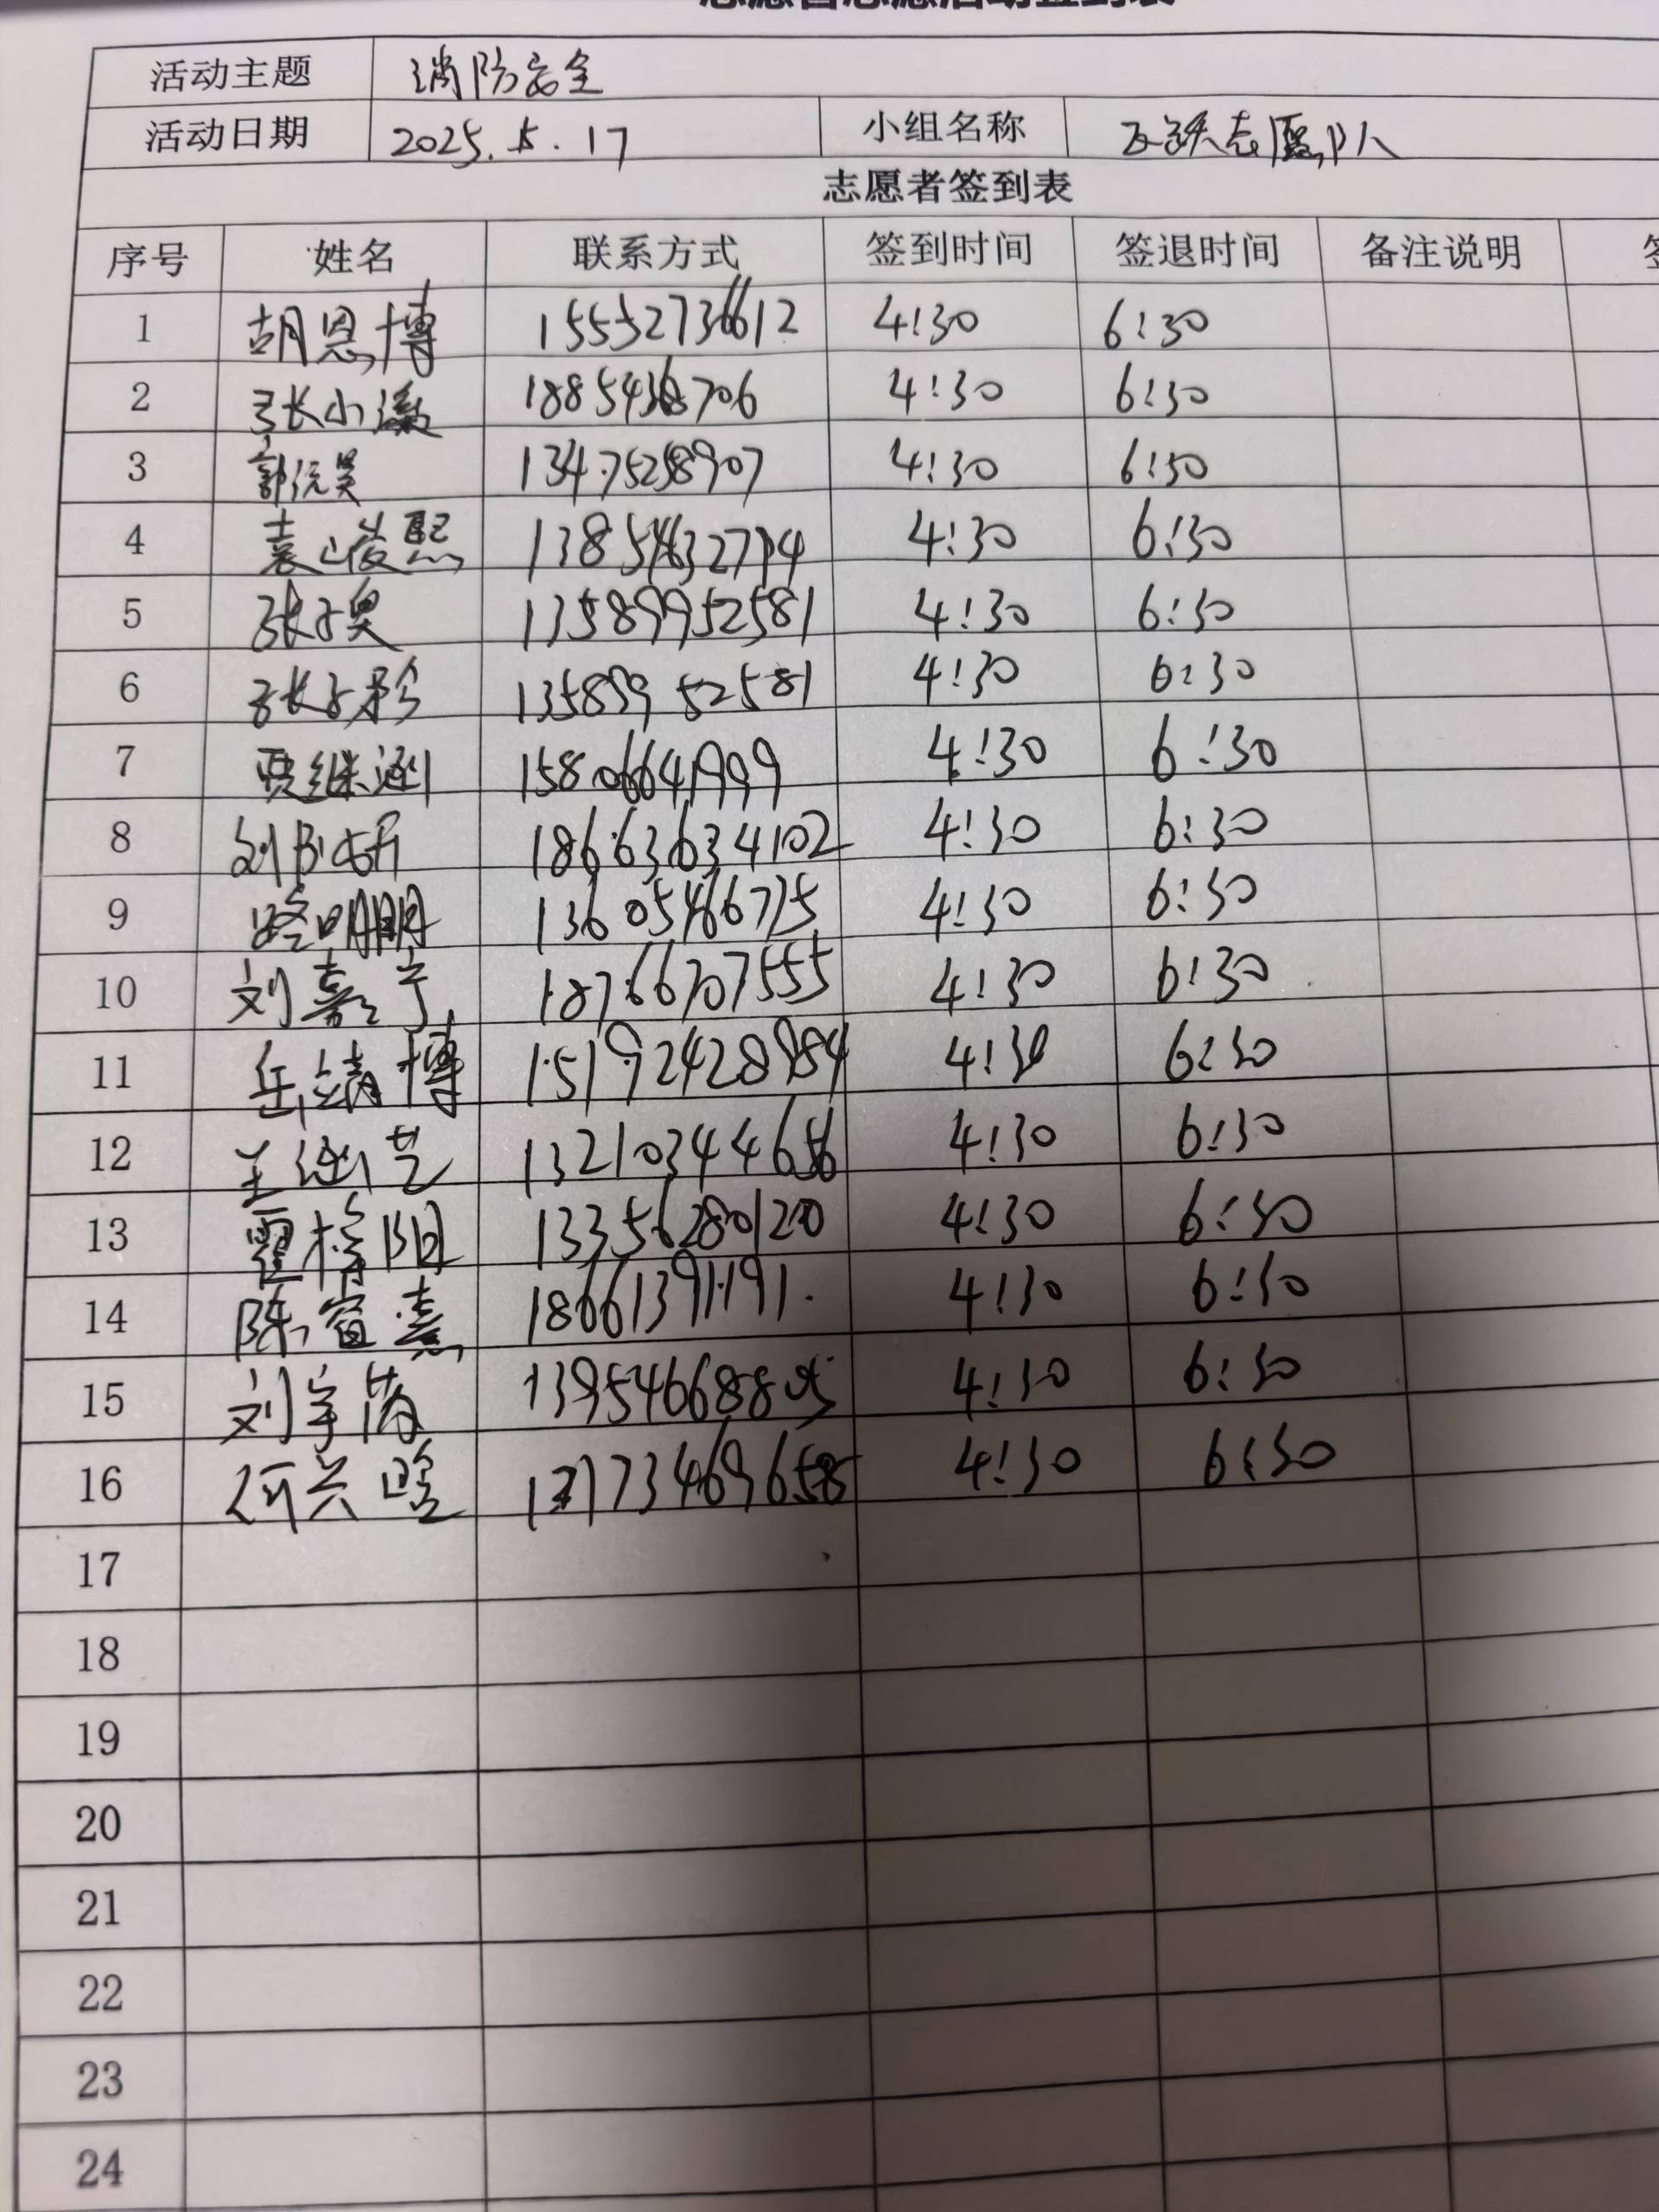 活动主题 消防安全
活动日期 2025.5.17 小组名称 志愿队
志愿者签到表
序号 姓名 联系方式 签到时间 签退时间 备注说明
1 胡恩博 15552736612 4:30 6:30
2 张小濛 4:30 6:30
3 郭沅昊 13475258907 4:30 6:30
4 袁峻熙 4:30 6:30
5 张子奥 13589952581 4:30 6:30
6 张子珍 13589952581 4:30 6:30
7 贾继涵 15806641999 4:30 6:30
8 刘 18663634102 4:30 6:30
9 路明朋 13605466715 4:30 6:30
10 刘嘉宁 18766707555 4:30 6:30
11 岳靖博 15192428984 4:30 6:30
12 王涵艺 13210344656 4:30 6:30
13 阳 13356280120 4:30 6:30
14 陈宣熹 18661391191. 4:30 6:30
15 刘宇芮 13954668805 4:30 6:30
16 何兴晗 4:30 6:30
17
18
19
20
21
22
23
24